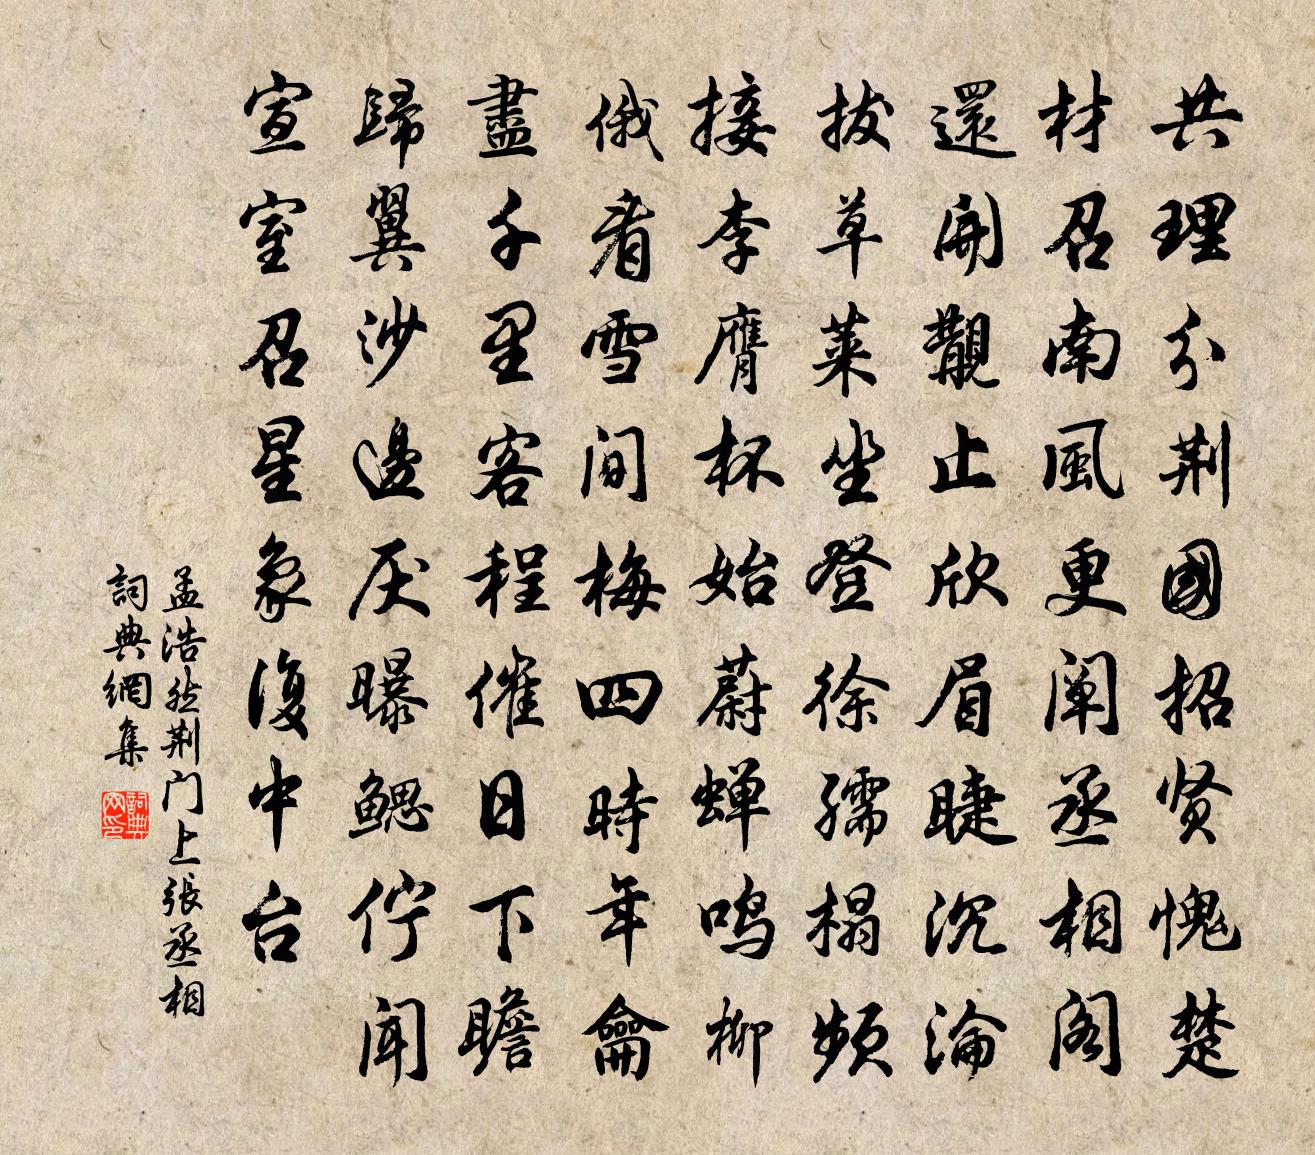 共理分荆國招贤愧楚
材召南風更阐丞相阁
還開覯止欣眉睫沉淪
拔草萊坐登徐孺榻频
接李膺杯始蔚蝉鸣柳
俄看雪间梅四時年龠
盡千里客程催日下瞻
歸翼沙邊厌曝鳃佇闻
宣室召星象復中台
孟浩然荆门上張丞相
詞典網集
詞典网印